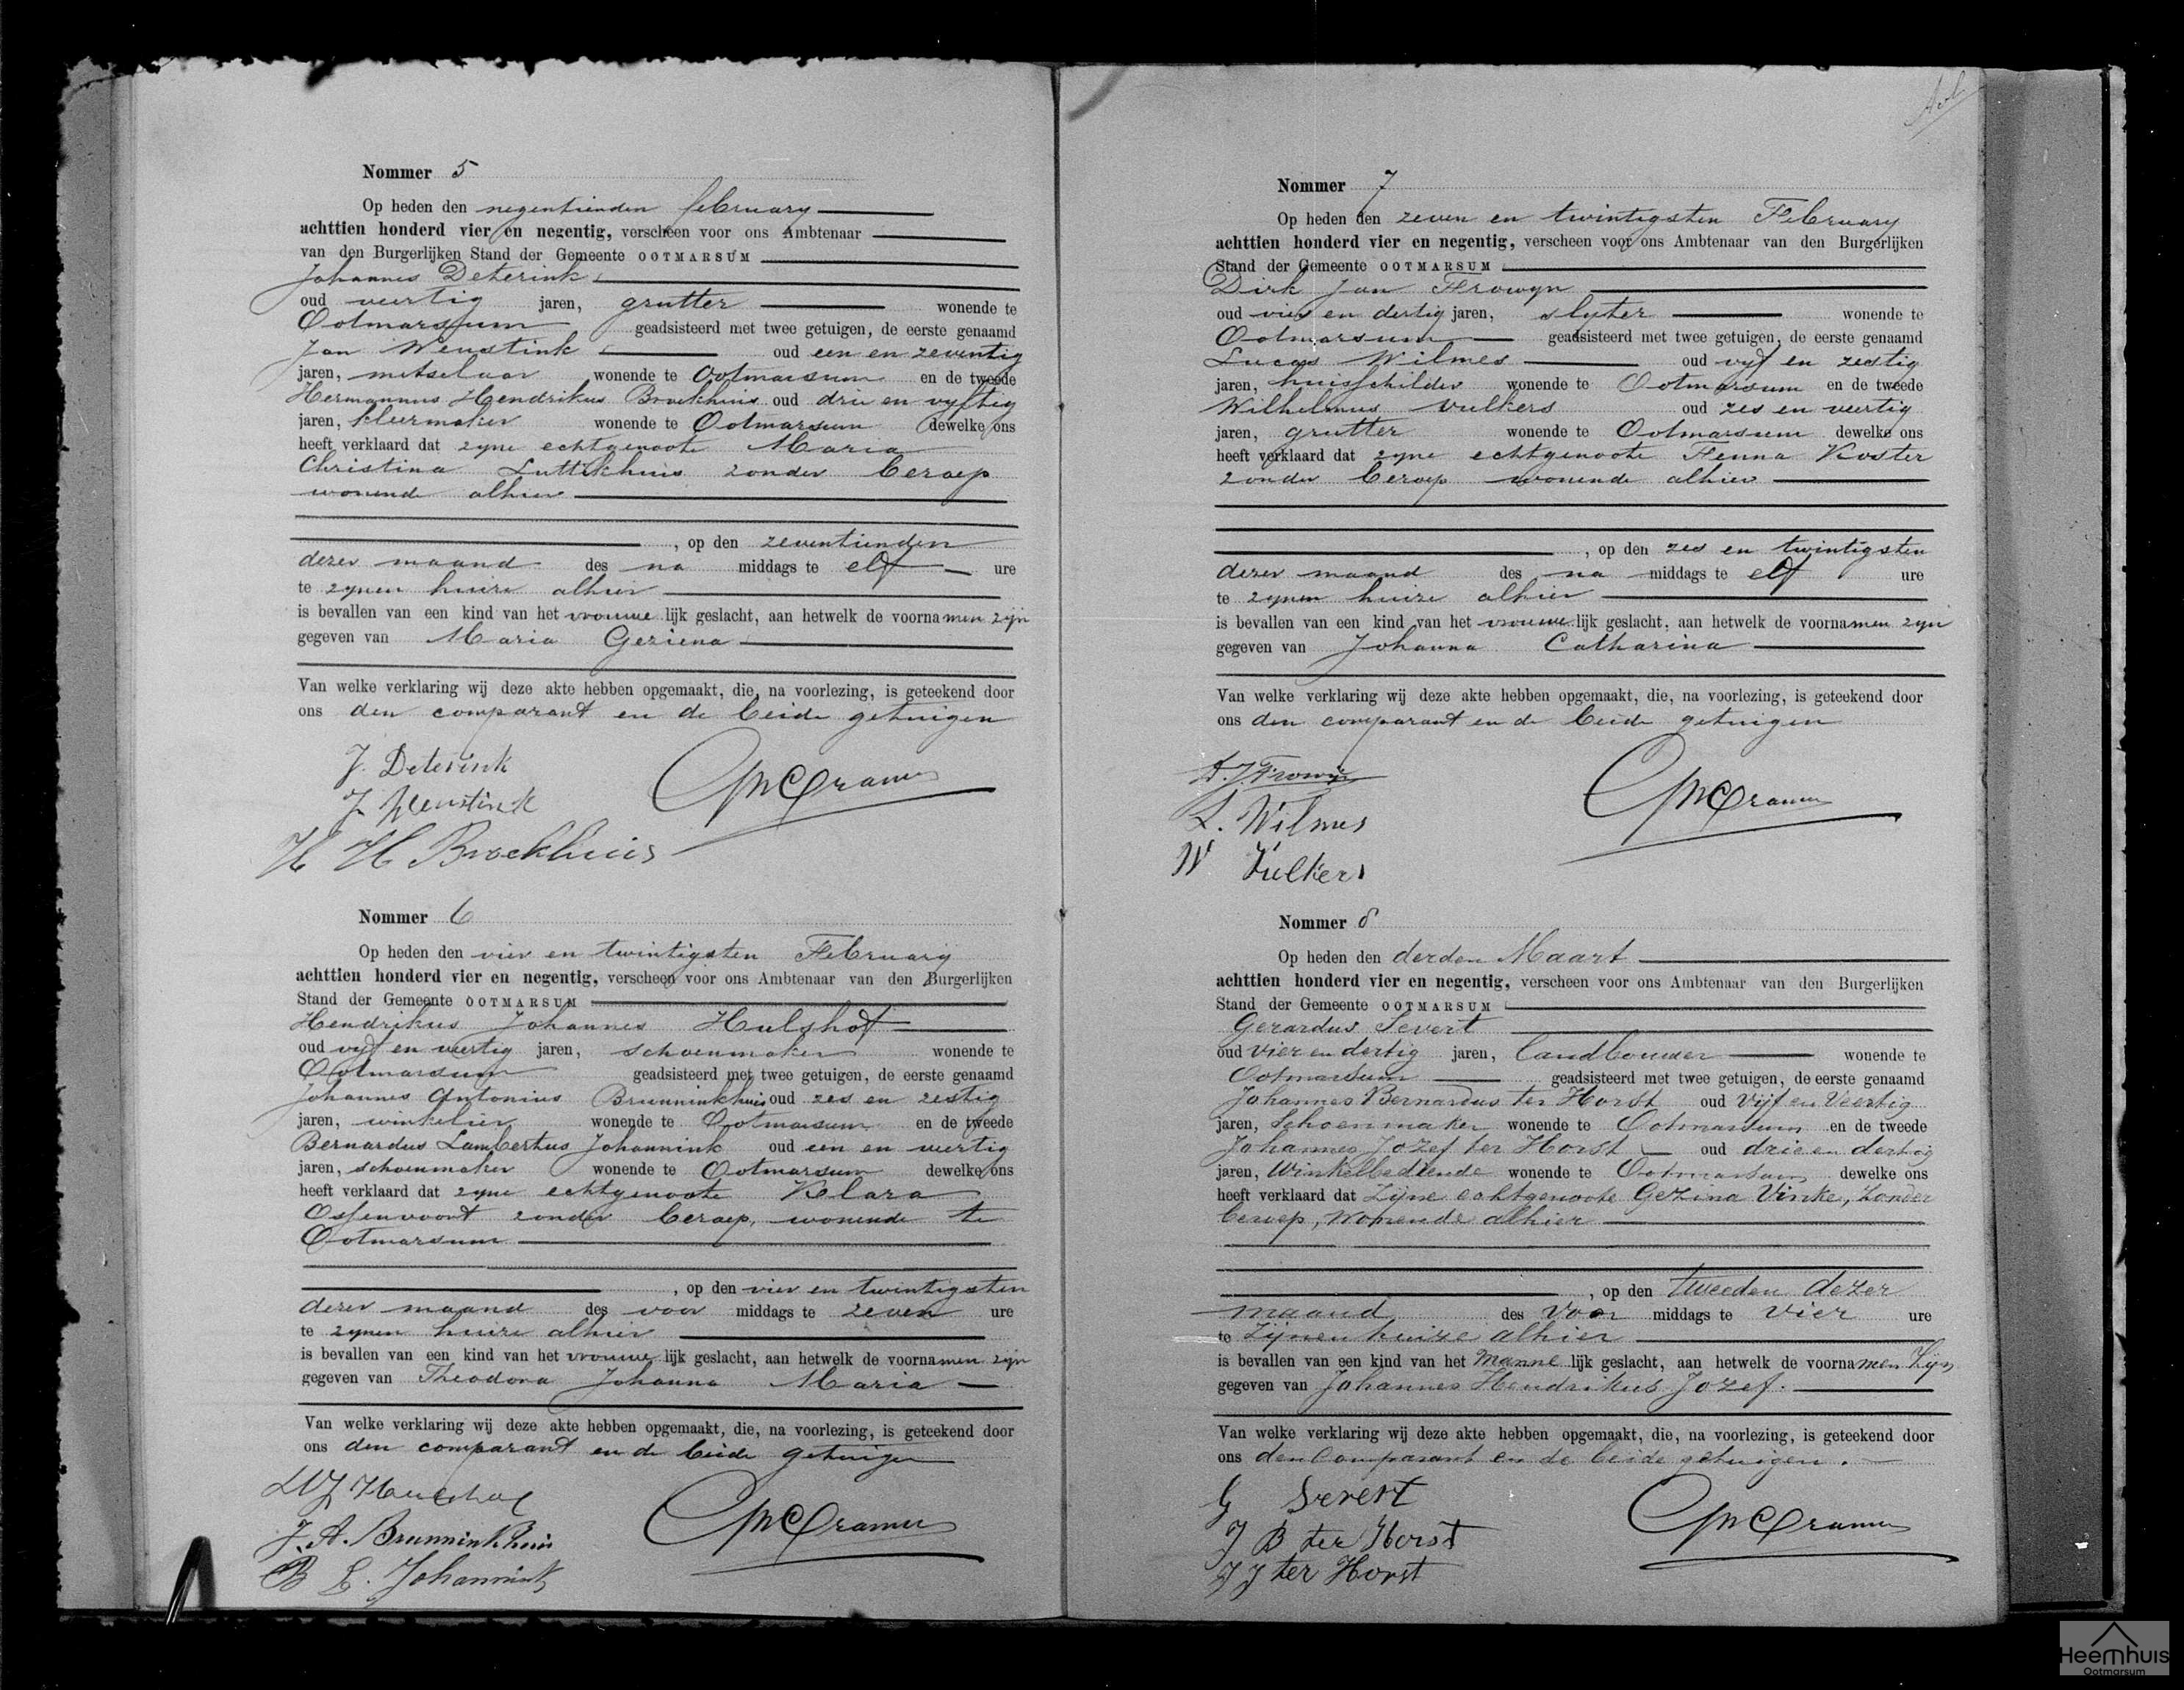 Nommer 5
Op heden den negentienden february
achttien honderd vier en negentig, verscheen voor ons Ambtenaar
van den Burgerlijken Stand der Gemeente OOTMARSUM
Johannes Deterink
oud veertig jaren, grutter wonende te
Ootmarsum geadsisteerd met twee getuigen, de eerste genaamd
Jan Weustink oud een en zeventig
jaren, metselaar wonende te Ootmarsum en de tweede
Hermannus Hendrikus Broekhuis oud drie en vyftig
jaren, kleermaker wonende te Ootmarsum dewelke ons
heeft verklaard dat zyne echtgenoote Maria
Christina Luttikhuis zonder beroep
wonende alhier
, op den zeventienden
dezer maand des na middags te elf ure
te zynen huize alhier
is bevallen van een kind van het vrouwelijk geslacht, aan hetwelk de voornamen zijn
gegeven van Maria Geziena
Van welke verklaring wij deze akte hebben opgemaakt, die, na voorlezing, is geteekend door
ons den comparant en de beide getuigen
J. Deterink
J Weustink
H H Broekhuis
Cramer
Nommer 6
Op heden den vier en twintigsten February
achttien honderd vier en negentig, verscheen voor ons Ambtenaar van den Burgerlijken
Stand der Gemeente OOTMARSUM
Hendrikus Johannes Hulshof
oud vyf en veertig jaren, schoenmaker wonende te
Ootmarsum geadsisteerd met twee getuigen, de eerste genaamd
Johannes Antonius Brunninkhuis oud zes en zestig
jaren, winkelier wonende te Ootmarsum en de tweede
Bernardus Lambertus Johannink oud een en veertig
jaren, schoenmaker wonende te Ootmarsum dewelke ons
heeft verklaard dat zyne echtgenoote Klara
Ossenvoort zonder beroep, wonende te
Ootmarsum
, op den vier en twintigsten
dezer maand des voor middags te zeven ure
te zynen huize alhier
is bevallen van een kind van het vrouwelijk geslacht, aan hetwelk de voornamen zijn
gegeven van Theodora Johanna Maria
Van welke verklaring wij deze akte hebben opgemaakt, die, na voorlezing, is geteekend door
ons den comparant en de beide getuigen
J. A. Brunninkhuis
B L. Johannink
Cramer
Nommer 7
Op heden den zeven en twintigsten February
achttien honderd vier en negentig, verscheen voor ons Ambtenaar van den Burgerlijken
Stand der Gemeente OOTMARSUM
Dirk Jan Frowyn
oud vier en dertig jaren, slyter wonende te
Ootmarsum geadsisteerd met twee getuigen, de eerste genaamd
Lucas Wilmes oud vyf en zestig
jaren, huisschilder wonende te Ootmarsum en de tweede
Wilhelmus Vulkers oud zes en veertig
jaren, grutter wonende te Ootmarsum dewelke ons
heeft verklaard dat zyne echtgenoote Fenna Koster
zonder beroep wonende alhier
, op den zes en twintigsten
dezer maand des na middags te elf ure
te zynen huize alhier
is bevallen van een kind van het vrouwelijk geslacht, aan hetwelk de voornamen zyn
gegeven van Johanna Catharina
Van welke verklaring wij deze akte hebben opgemaakt, die, na voorlezing, is geteekend door
ons den comparant en de beide getuigen
D. J. Frowijn
L. Wilmes
W Vulkers
Cramer
Nommer 8
Op heden den derden Maart
achttien honderd vier en negentig, verscheen voor ons Ambtenaar van den Burgerlijken
Stand der Gemeente OOTMARSUM
Gerardus Severt
oud vier en dertig jaren, landbouwer wonende te
Ootmarsum geadsisteerd met twee getuigen, de eerste genaamd
Johannes Bernardus ter Horst oud vijf en veertig
jaren, Schoenmaker wonende te Ootmarsum en de tweede
Johannes Jozef ter Horst oud drie en dertig
jaren, Winkelbediende wonende te Ootmarsum dewelke ons
heeft verklaard dat zijne echtgenoote Gezina Vinke, zonder
beroep, wonende alhier
, op den tweeden dezer
maand des voor middags te vier ure
te zijnen huize alhier
is bevallen van een kind van het mannelijk geslacht, aan hetwelk de voornamen zijn
gegeven van Johannes Hendrikus Jozef.
Van welke verklaring wij deze akte hebben opgemaakt, die, na voorlezing, is geteekend door
ons den Comparant en de beide getuigen.
G Severt
J B ter Horst
J J ter Horst
Cramer
Heemhuis
Ootmarsum